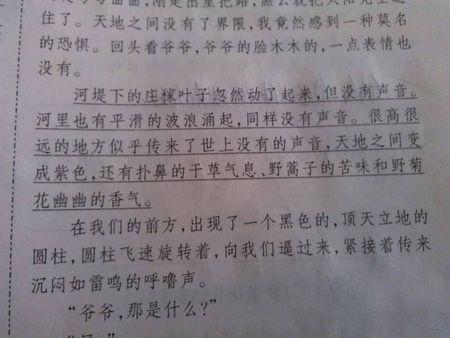 住了。天地之间没有了界限，我竟然感到一种莫名
的恐惧。回头看爷爷，爷爷的脸木木的，一点表情也
没有。
河堤下的庄稼叶子忽然动了起来，但没有声音。
河里也有平滑的波浪涌起，同样没有声音。很高很
远的地方似乎传来了世上没有的声音，天地之间变
成紫色，还有扑鼻的干草气息、野蒿子的苦味和野菊
花幽幽的香气。
在我们的前方，出现了一个黑色的，顶天立地的
圆柱，圆柱飞速旋转着，向我们逼过来，紧接着传来
沉闷如雷鸣的呼噜声。
“爷爷，那是什么？”